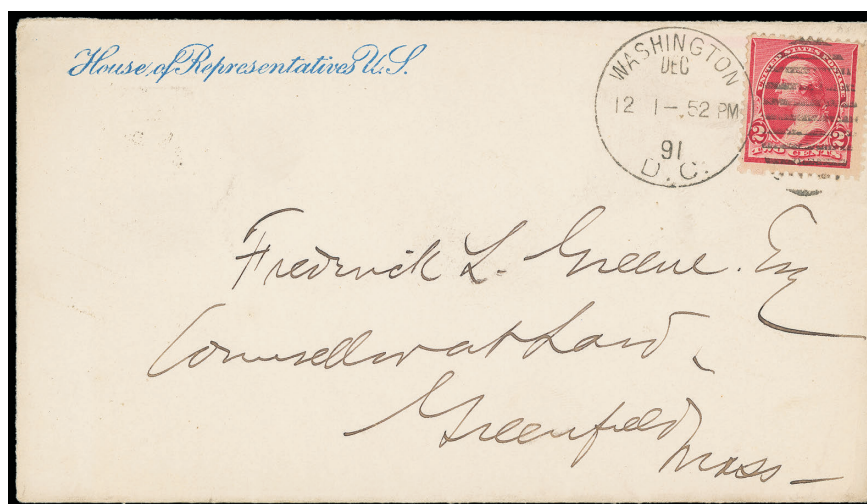 House of Representatives U.S.
WASHINGTON
DEC
12 1-.52 PM
91
D.C.
UNITED STATES POSTAGE
2 2
TWO CENTS
Frederick L. Greene. Esq
Counsellor at Law.
Greenfield
Mass